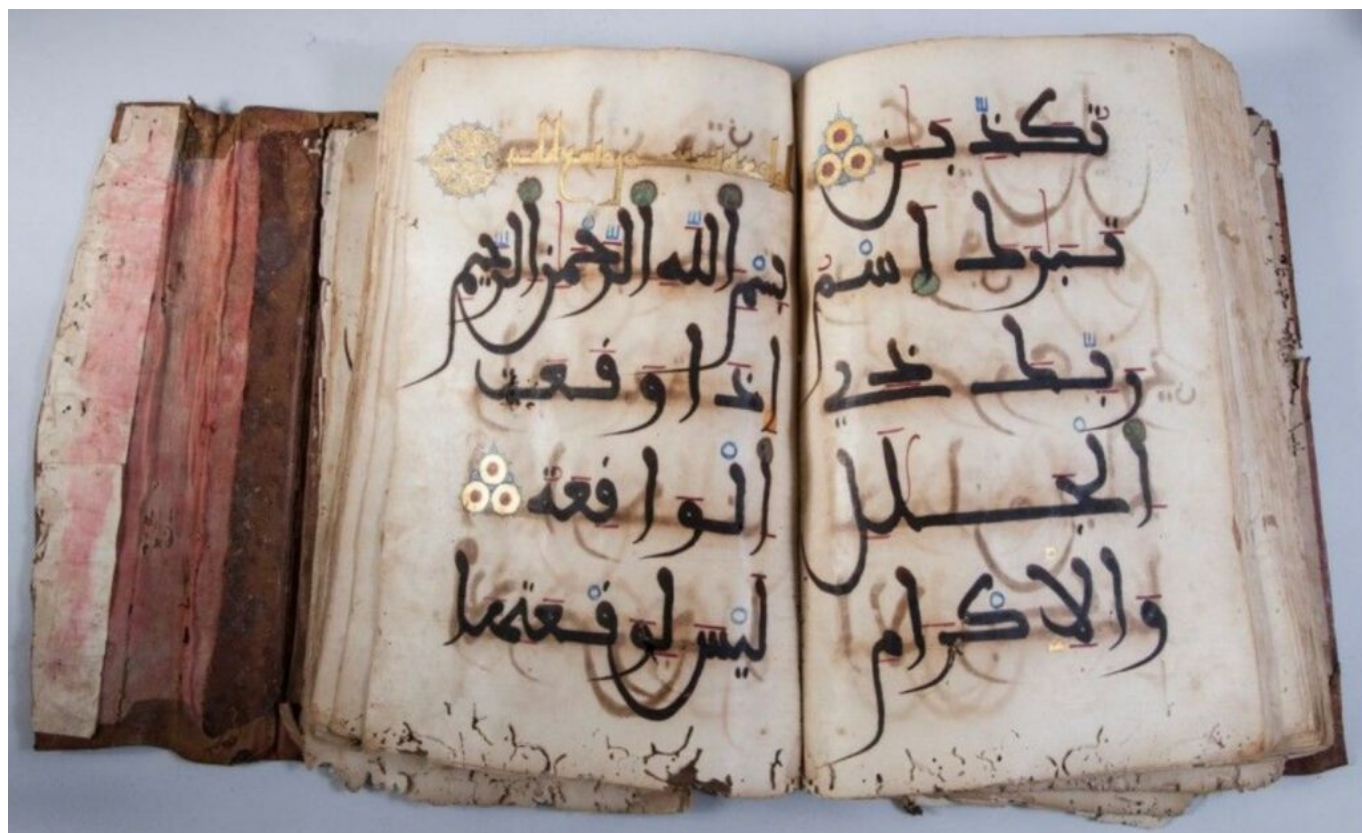 تكذبن
تبرك اسم
ربك ذي
الجلل
والاكرام
بسم الله الرحمن الرحيم
اذا وقعت
الواقعة
ليس لوقعتها